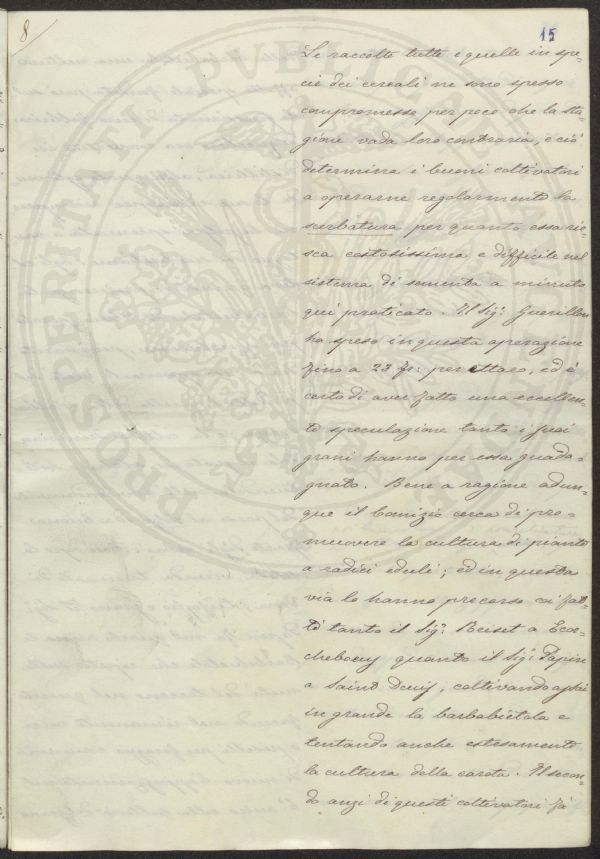 8
15
Le raccolte tutte e quelle in spe-
cie dei cereali ne sono spesso
compromesse per poco che la sta-
gione vada loro contraria, e ciò
determina i buoni coltivatori
a operarne regolarmente la
scerbatura per quanto essa rie-
sca costosissima e difficile nel
sistema di sementa a minuto
qui praticato. Il Sigr. Guerillon
ha speso in questa operazione
fino a 23 fr: per ettaro, ed è
certo di aver fatto una eccellen-
te speculazione tanto i suoi
grani hanno per essa guada-
gnato. Bene a ragione adun-
que il Comizio cerca di pro-
muovere la cultura di piante
a radici eduli; ed in questa
via lo hanno precorso coi fat-
ti tanto il Sigr. Beiset a Ecor-
cheboeuf quanto il Sigr. Papin
a Saint Denis, coltivando assai
in grande la barbabietola e
tentando anche estesamente
la cultura della carota. Il secon-
do anzi di questi coltivatori fa
PROSPERITATI PVBLICAE